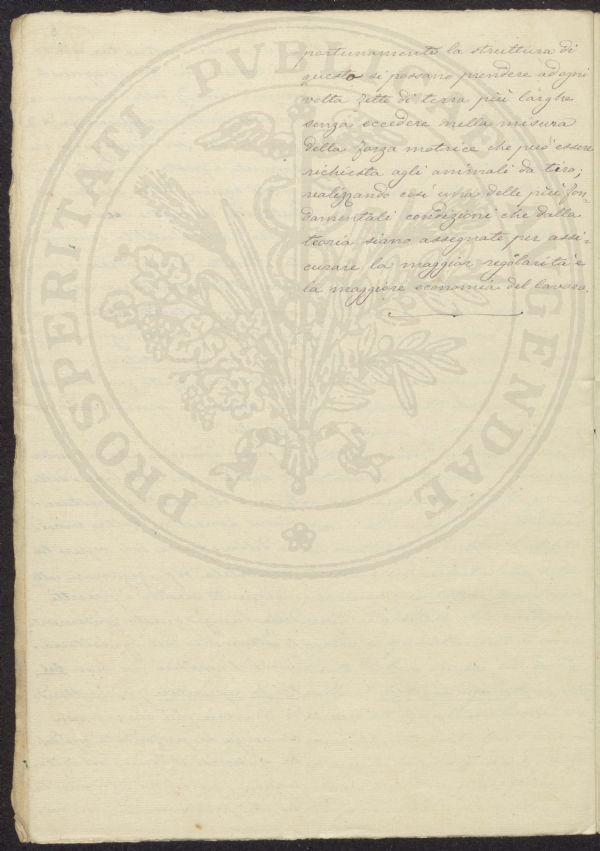 portunamente la struttura di
questo si possano prendere ad ogni
volta fette di terra più larghe
senza eccedere nella misura
della forza motrice che può essere
richiesta agli animali da tiro;
realizzando così una delle più fon=
damentali condizioni che dalla
teoria siano assegnate per assi=
curare la maggior regolarità e
la maggiore economia del lavoro.
PROSPERITATI PVBLICAE AVGENDAE